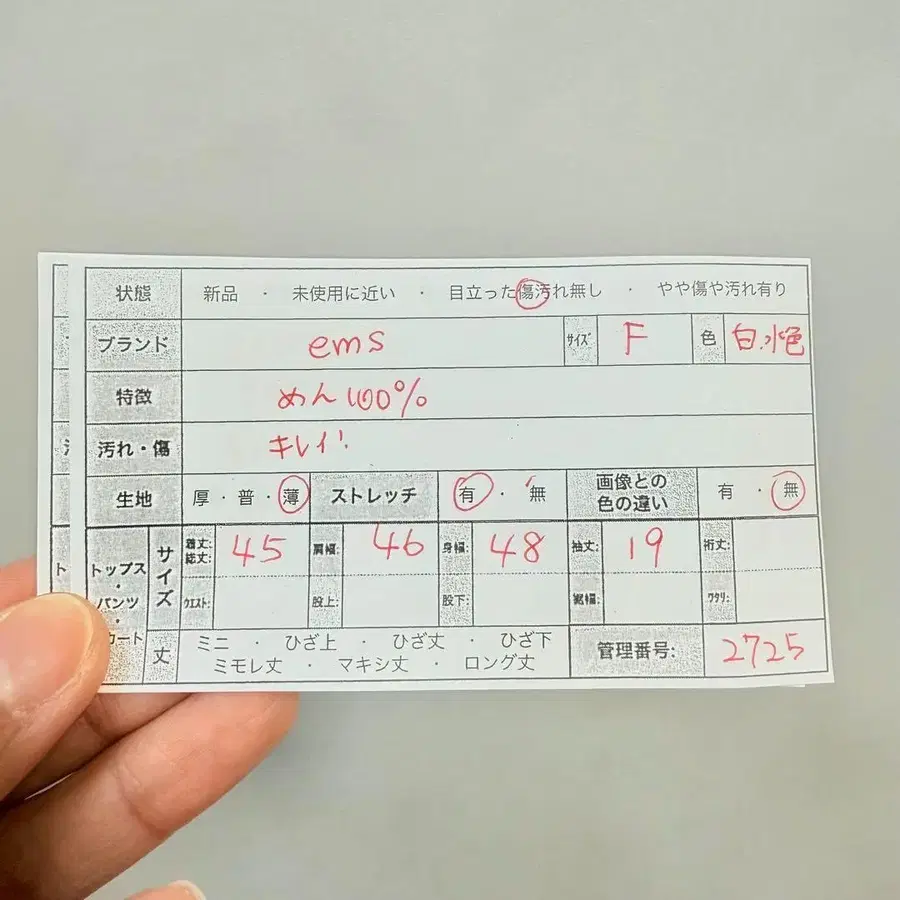 状態 新品 ・ 未使用に近い ・ 目立った傷汚れ無し ・ やや傷や汚れ有り
ブランド ems サイズ F 色 白.水色
特徴 めん100%
汚れ・傷 キレイ!
生地 厚・普・薄 ストレッチ 有・無 画像との色の違い 有・無
トップス・パンツ・カート サイズ 着丈:総丈: 45 肩幅: 46 身幅: 48 袖丈: 19 裄丈:
ウエスト: 股上: 股下: 裾幅: ワタリ:
丈 ミニ ・ ひざ上 ・ ひざ丈 ・ ひざ下
ミモレ丈 ・ マキシ丈 ・ ロング丈 管理番号: 2725